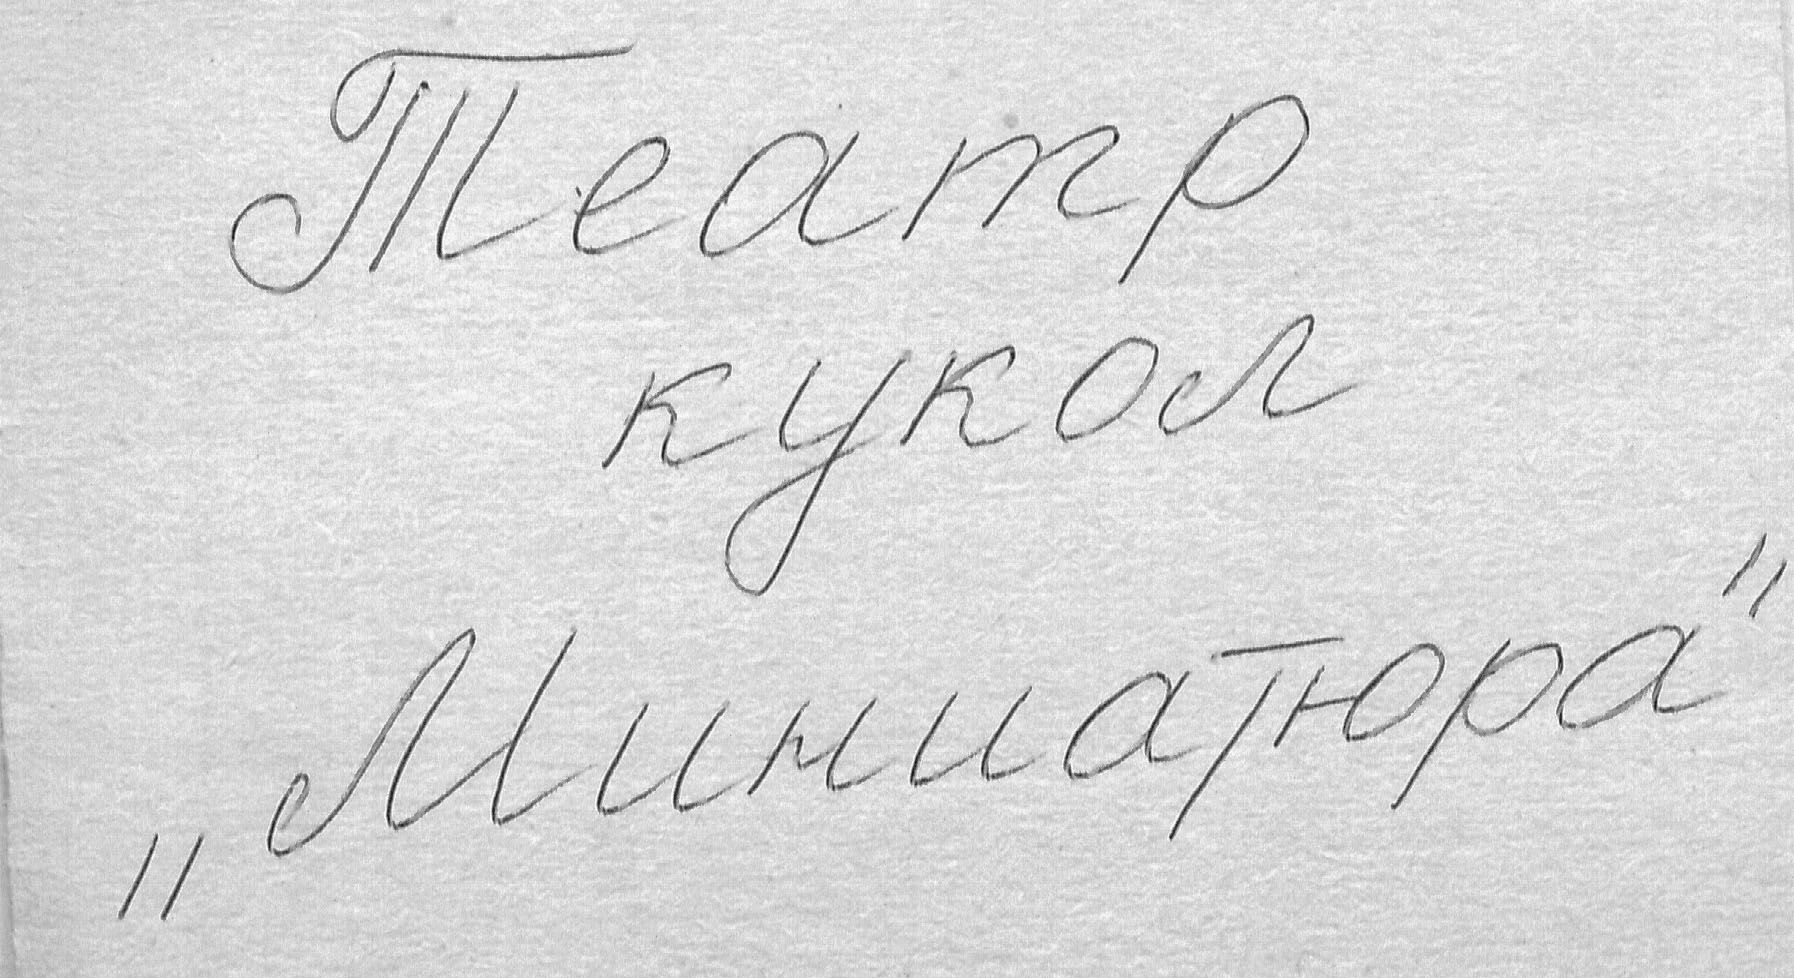 Театр
кукол
„Миниатюра"